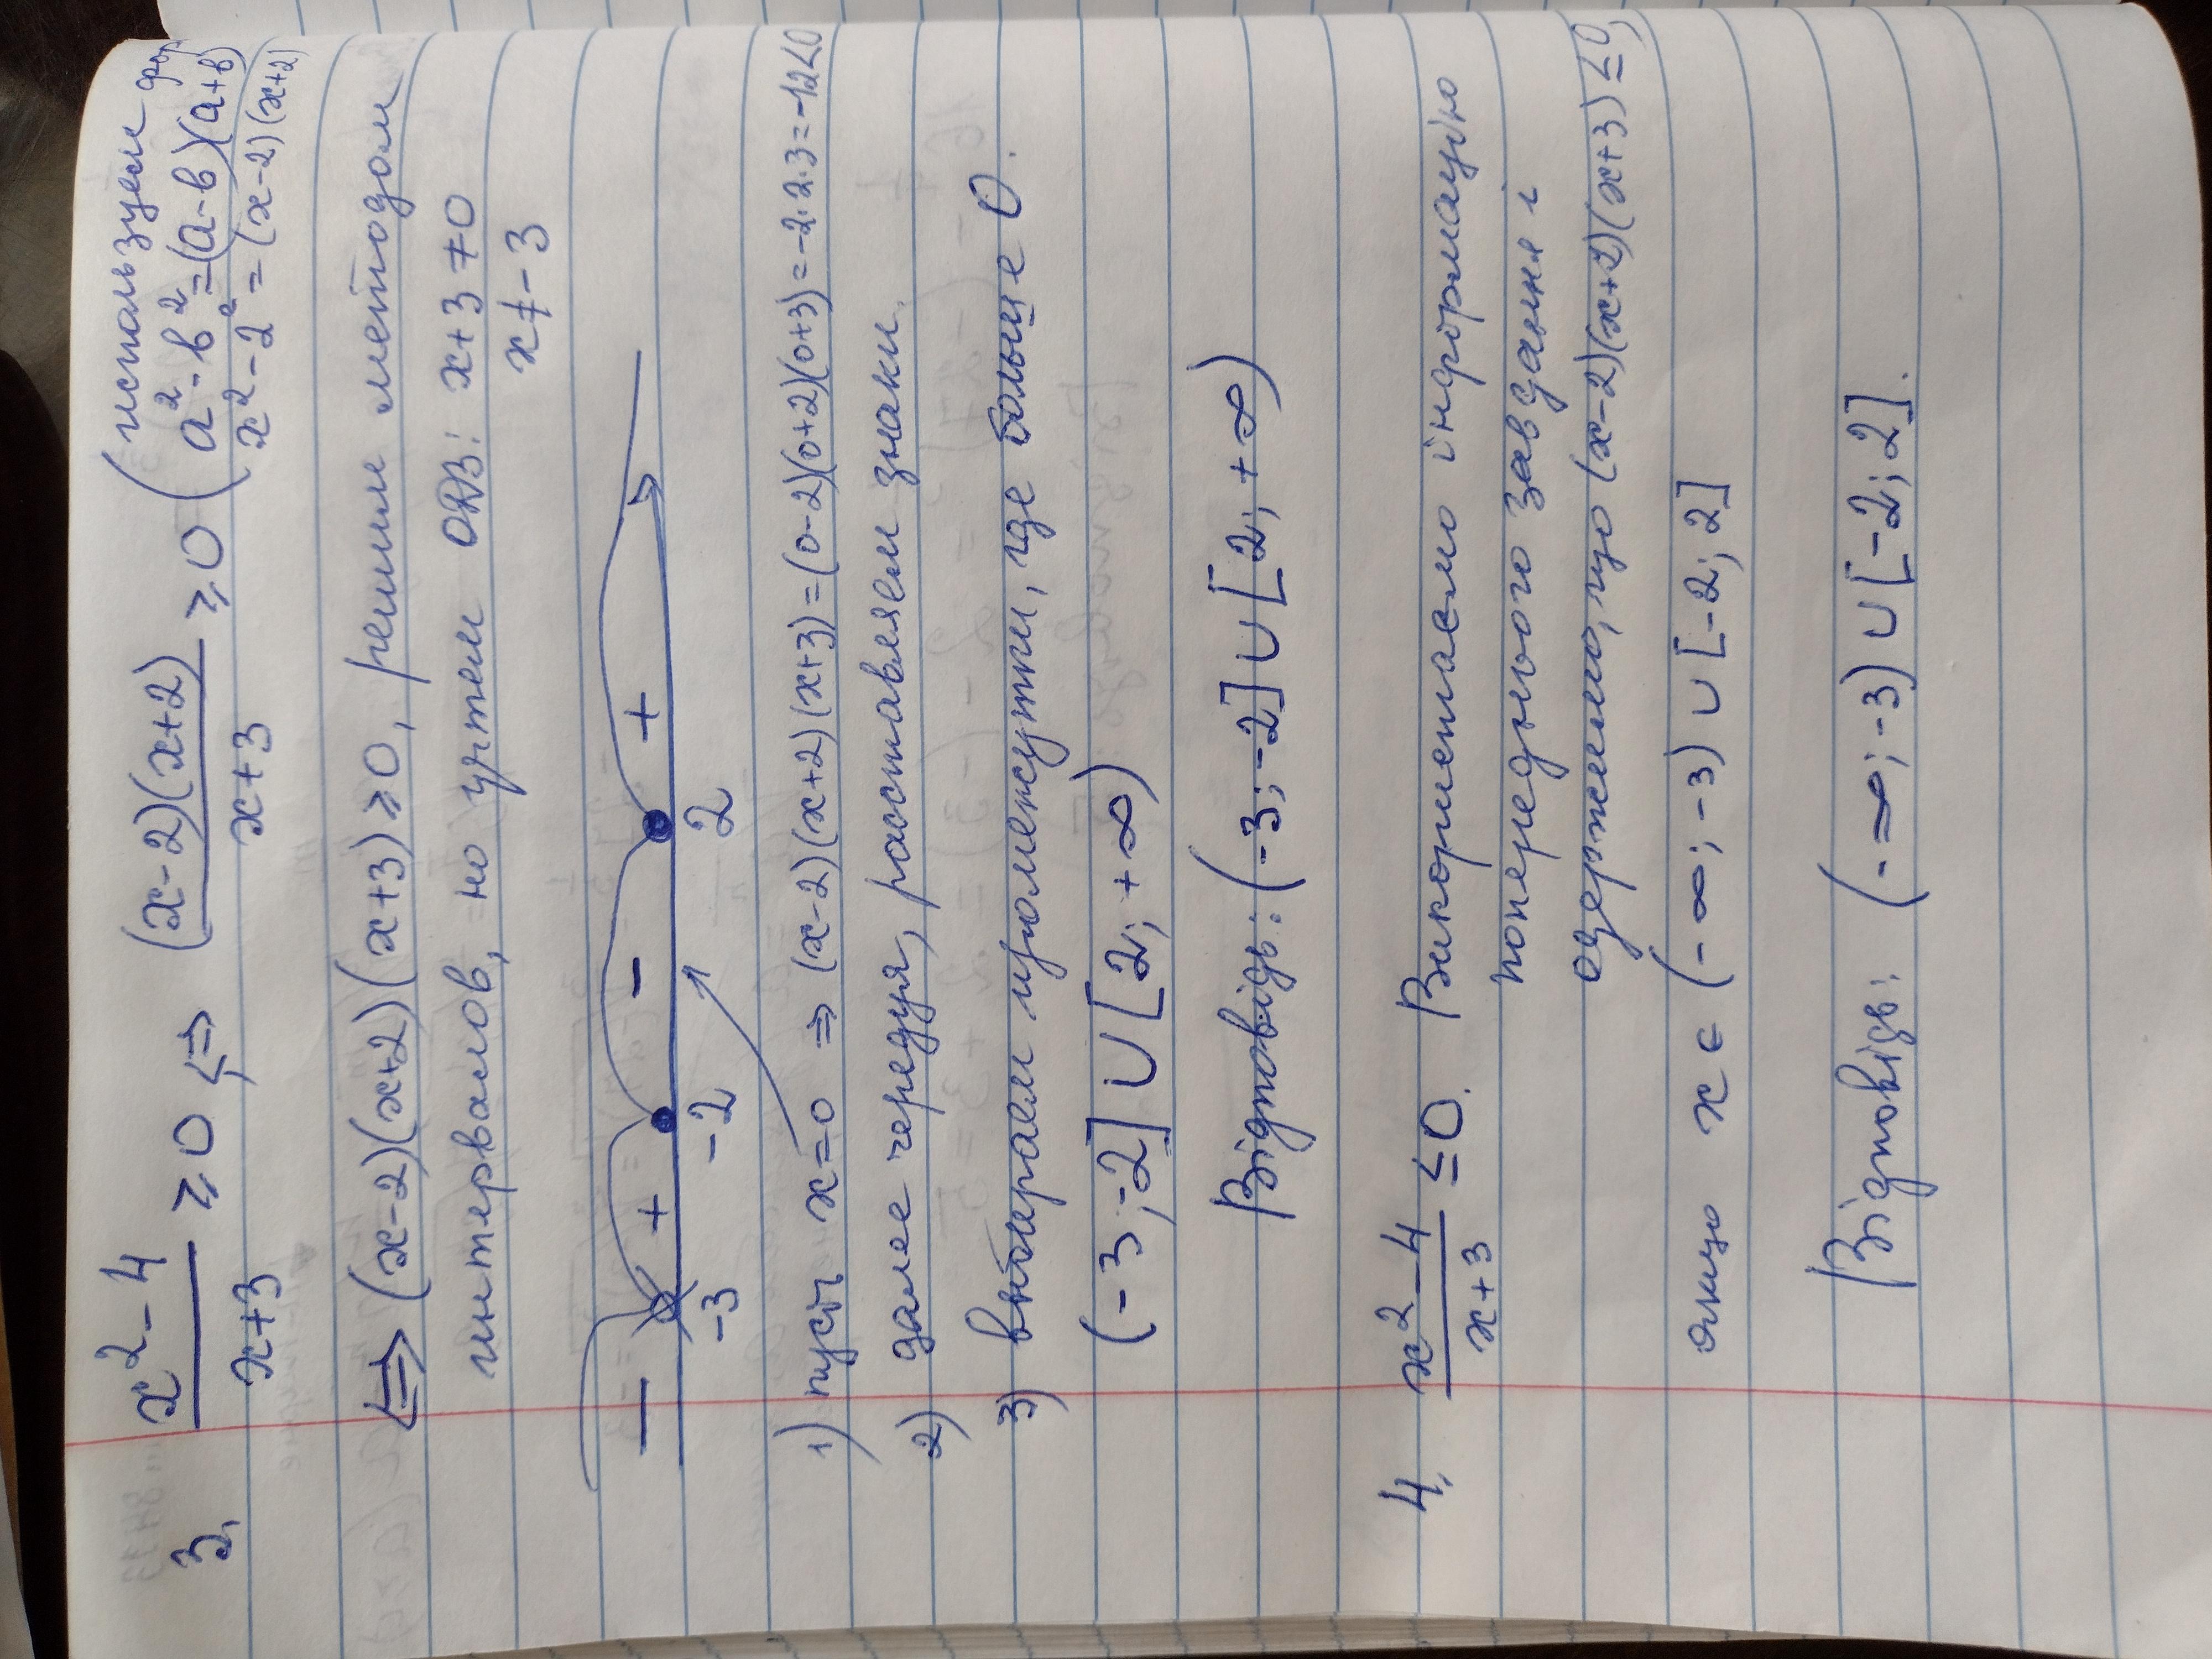 3. x²-4/x+3 ≥ 0 ⇔ (x-2)(x+2)/x+3 ≥ 0 (используем
a²-b²=(a-b)(a+b)
x²-2²=(x-2)(x+2)
⇔ (x-2)(x+2)(x+3)≥0, решим методом
интервалов, но учтем ОДЗ: x+3≠0
x≠-3
- + - +
-3 -2 2
1) пусть x=0 ⇒ (x-2)(x+2)(x+3)=(0-2)(0+2)(0+3)=-2·2·3=-12<0
2) далее чередуя, расставляем знаки.
3) выбираем промежутки, где больше 0.
(-3;-2]∪[2;+∞)
Відповідь: (-3;-2]∪[2;+∞)
4. x²-4/x+3 ≤0. Використаємо інформацію
попереднього завдання і
одержимо, що (x-2)(x+2)(x+3)≤0,
якщо x∈(-∞;-3)∪[-2;2]
Відповідь: (-∞;-3)∪[-2;2].